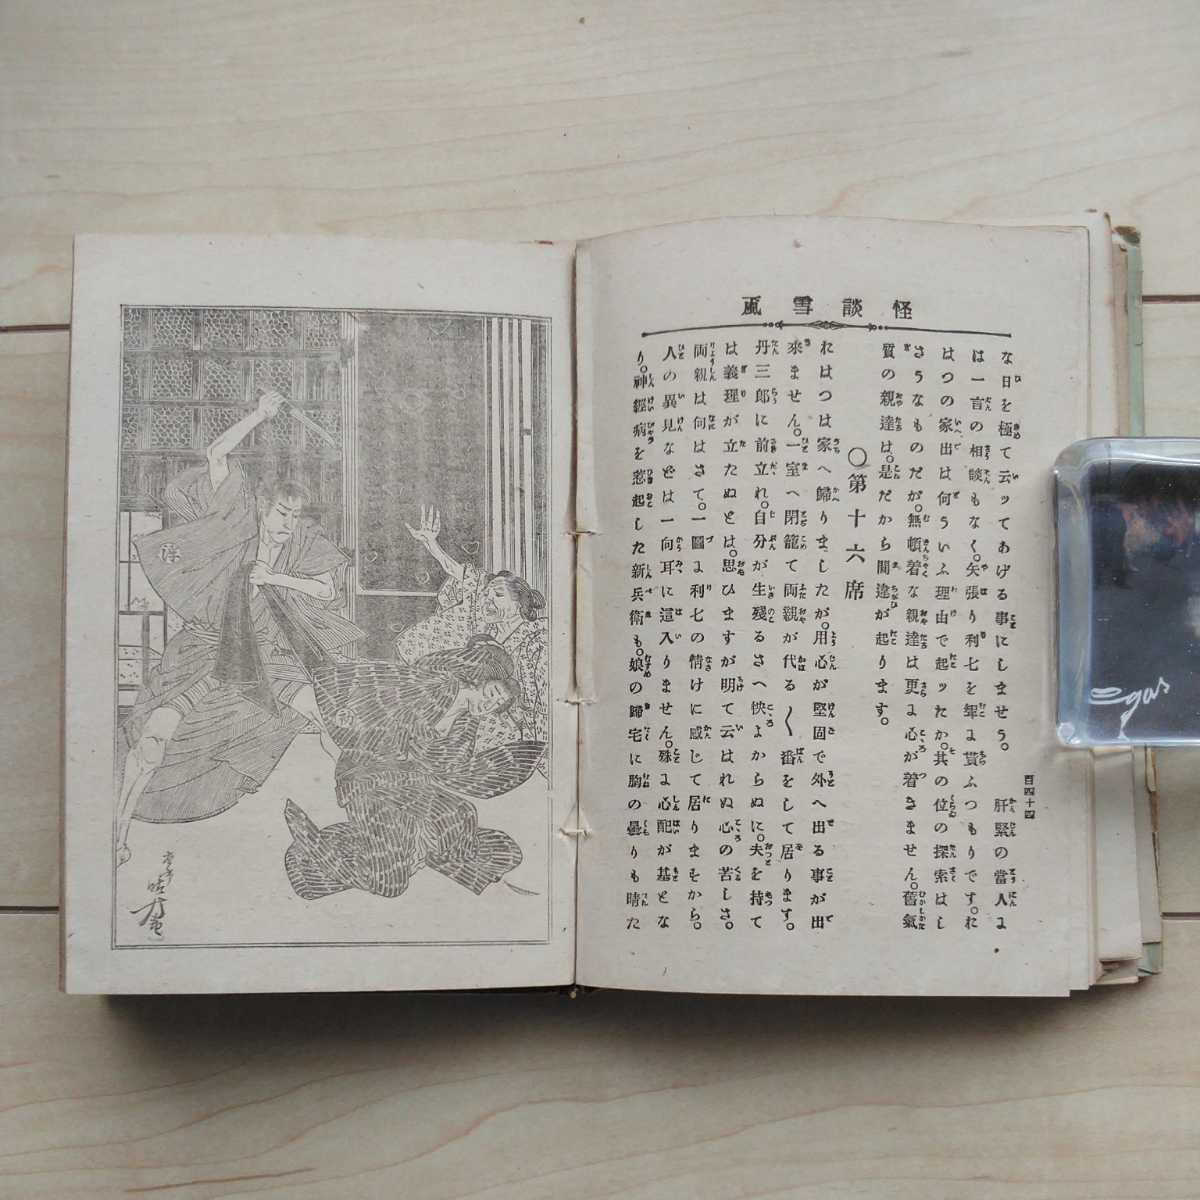 怪談雪風
百四十四
な日を極て云ッてあげる事にしませう。肝緊の當人よ
は一言の相談もなく。矢張り利七を聟よ貰ふつもりです。れ
はつの家出は何ういふ理由で起ッたか。其の位の探索はし
さうなものだが。無頓着な親達は更よ心が着きません。舊氣
質の親達は。是だから間違が起ります。
○第十六席
れはつは家へ歸りましたが。用心が堅固で外へ出る事が出
來ません。一室へ閉籠て両親が代る〱番をして居ります。
丹三郎に前立れ。自分が生殘るさへ快よからぬに。夫を持て
は義理が立たぬとは。思ひますが明て云はれぬ心の苦しさ。
両親は何はさて。一圖よ利七の情けに感じて居りますから。
人の異見などは一向耳に這入りません。殊よ心配が基とな
り。神經病を惹起した新兵衛も。娘の歸宅に胸の曇りも晴た
Egas